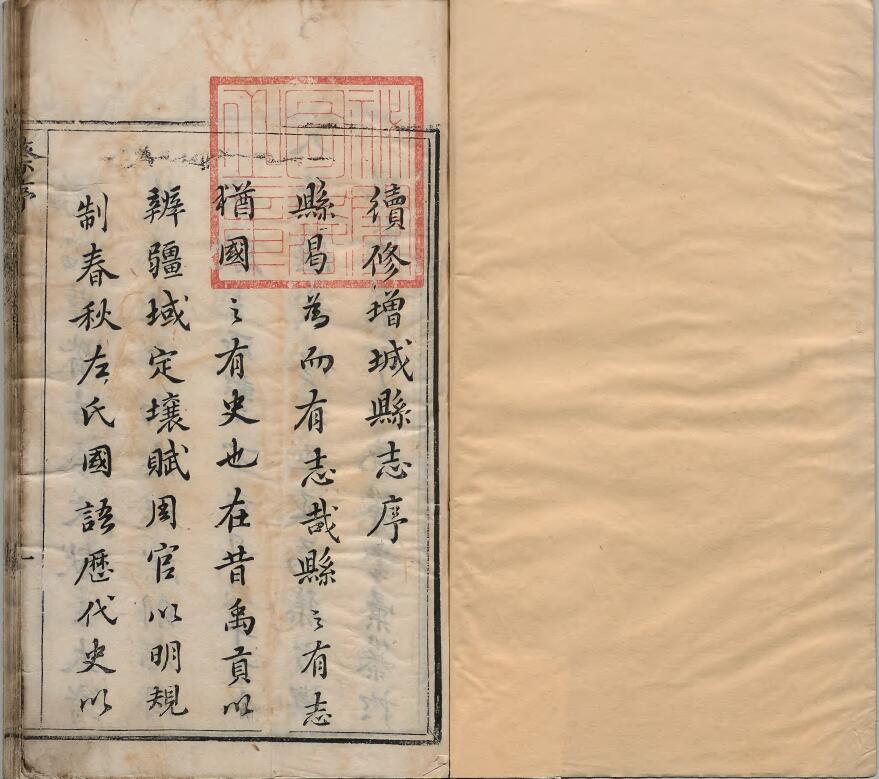 續修增城縣志序
縣曷為而有志哉縣之有志
猶國之有史也在昔禹貢以
辨疆域定壤賦周官以明規
制春秋左氏國語歷代史以